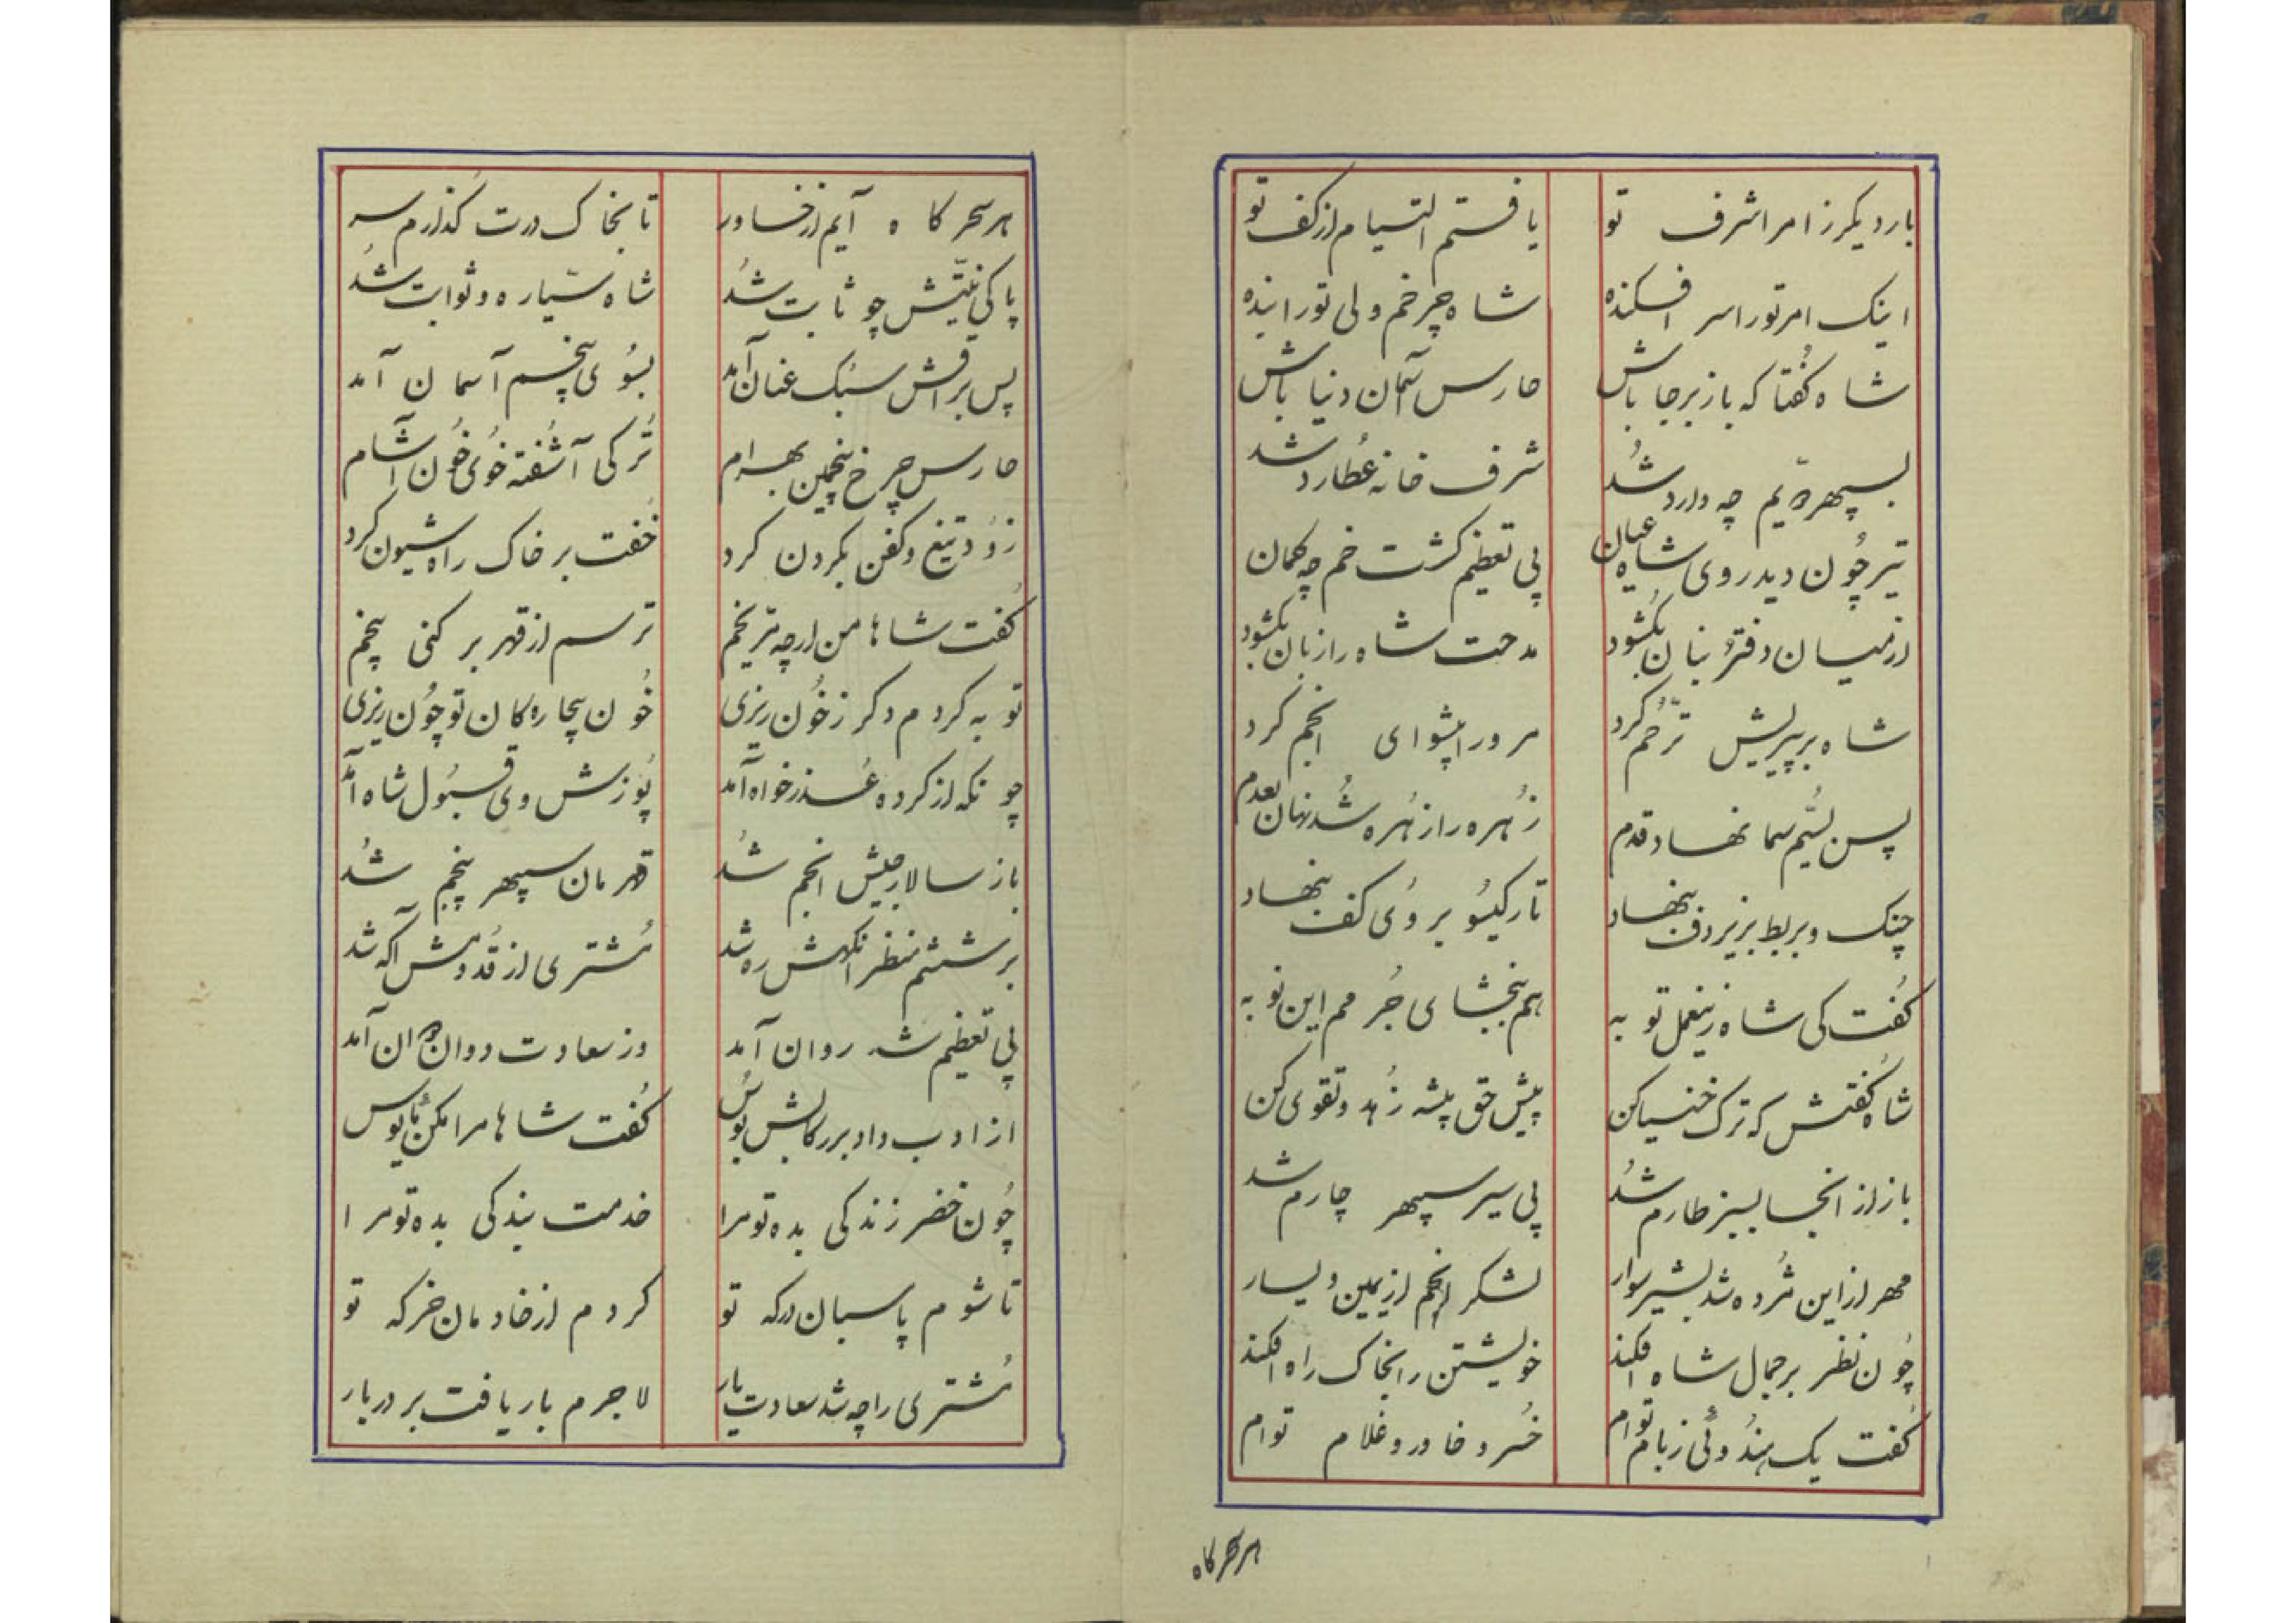 بار دیکر ز امر اشرف تو یافتم التیام از کف تو
اینک امر تو را سر افکنده شاه چرخم ولی تو را بنده
شاه کفتا که باز برجا باش حارس آسمان دنیا باش
بسپهر دویم چه وارد شد شرف خانه عطارد شد
تیر چون دید روی شاه عیان پی تعظیم کشت خم چه کمان
از میان دفتر بنان بکشود مدحت شاه را زبان بکشود
شاه بر پیریش ترحم کرد مر ورا پیشوای انجم کرد
پس بسیم سما نهاد قدم زهره را زهره شد نهان بعدم
چنک و بربط بزیر دف بنهاد تار کیسو بروی کف بنهاد
کفت کی شاه زینعمل توبه هم ببخشای جرمم این توبه
شاه کفتش که ترک خنیا کن پیش حق پیشه زهد و تقوی کن
باز از انجا بسبز طارم شد پی سیر سپهر چارم شد
مهر از این مژده شد بشیر سوار لشکر انجم از یمین و یسار
چون نظر بر جمال شاه افکند خویشتن را بخاک راه افکند
کفت یک هندوئی ز بام توام خسرو خاور و غلام توام
هر سحرکاه
هر سحرکاه آیم از خاور تا بخاک درت کذارم سر
پاکی نیتش چو ثابت شد شاه سیاره و ثوابت شد
پس براقش سبک عنان آمد بسوی پنجم آسمان آمد
حارس چرخ پنجمین بهرام ترکی آشفته خوی خون آشام
زود تیغ و کفن بکردن کرد خفت بر خاک راه شیون کرد
کفت شاها من ارچه تریخم ترسم از قهر بر کنی بیخم
توبه کردم دکر ز خون ریزی خون بیچاره کان تو چون ریزی
چونکه از کرده عذر خواه آمد پوزش وی قبول شاه آمد
باز سالار جیش انجم شد قهرمان سپهر پنجم شد
بر ششم منظر انکهش ره شد مشتری از قدومش آکه شد
پی تعظیم شه روان آمد وز سعادت دوان دوان آمد
از ادب داد بر رکابش بوس کفت شاها مرا مکن مایوس
چون خضر زندکی بده تو مرا خدمت بندکی بده تو مرا
تا شوم پاسبان درکه تو کردم از خادمان خرکه تو
مشتری را چه شد سعادت یار لاجرم بار یافت بر دربار